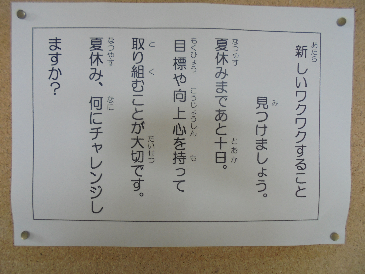 新しいワクワクすること
見つけましょう。
夏休みまであと十日。
目標や向上心を持って
取り組むことが大切です。
夏休み、何にチャレンジし
ますか？